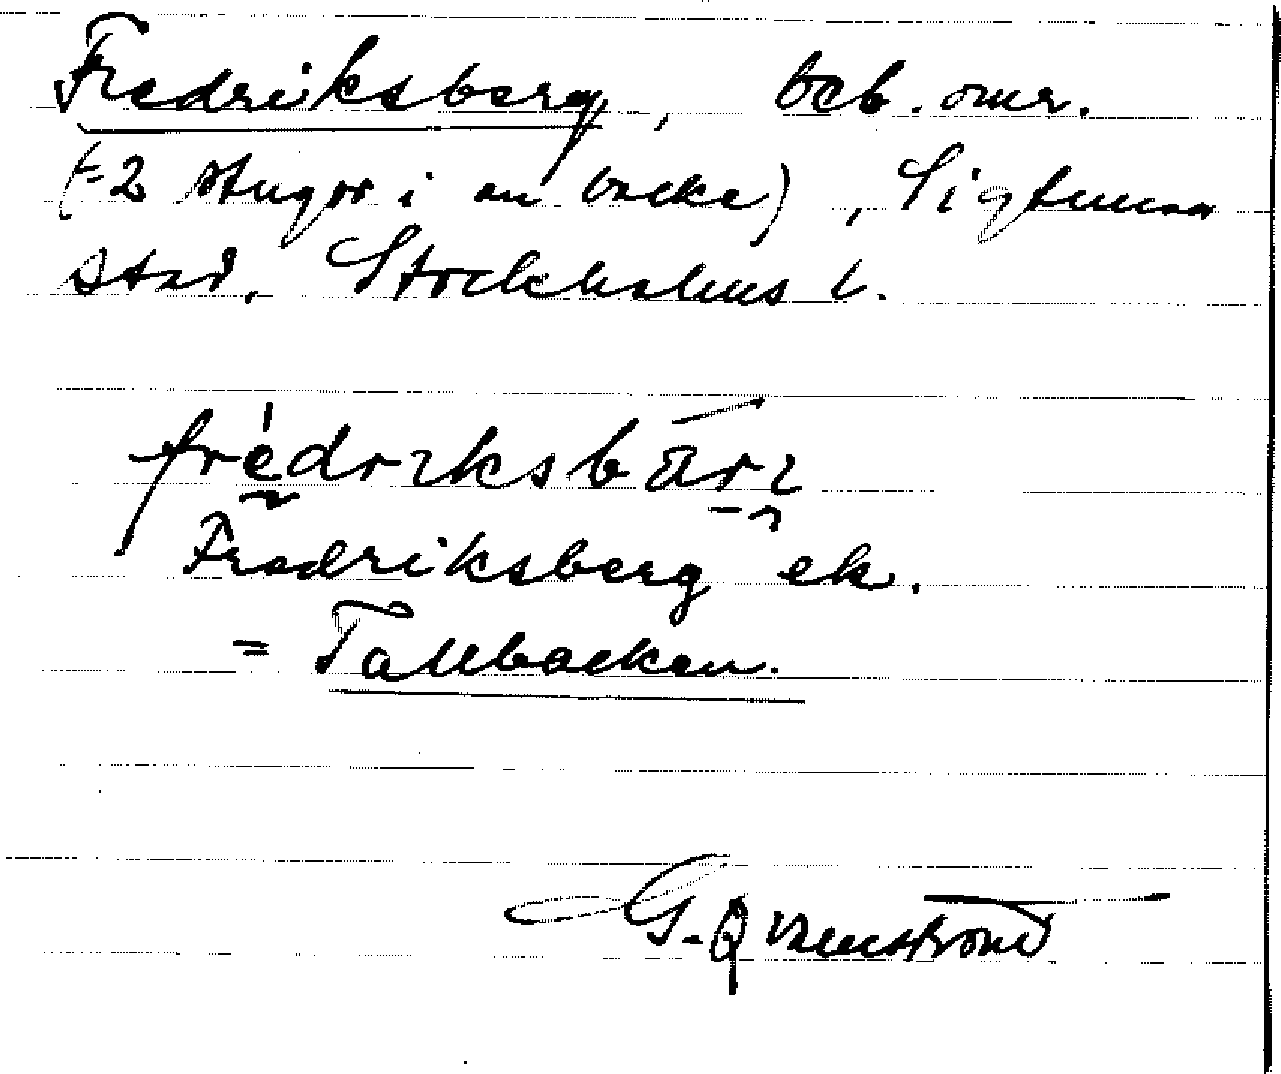 Fredriksberg, beb. omr.
(=2 stugor i en backe), Sigtuna
stad, Stockholms l.
frédriksbärj
Fredriksberg ek.
= Tallbacken.
G. Qvarnström